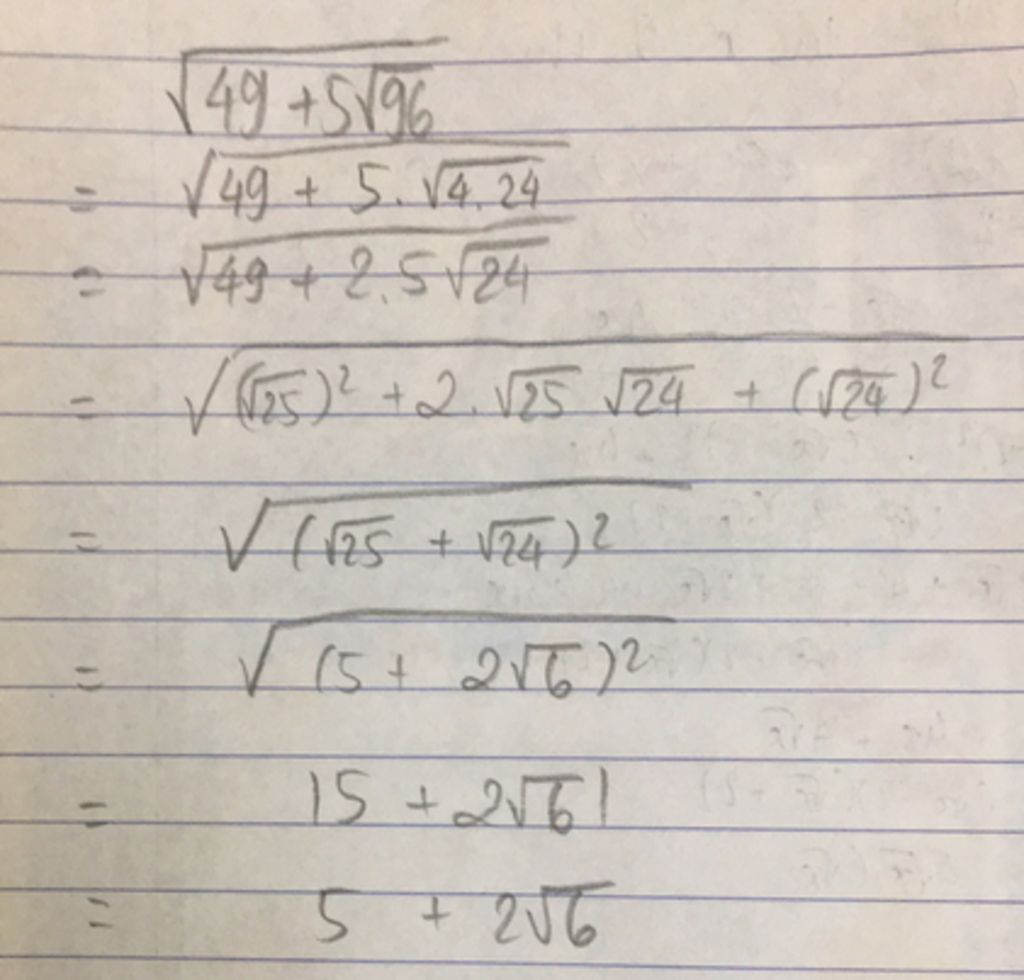 √(49 + 5√96)
= √(49 + 5.√(4.24))
= √(49 + 2.5√24)
= √((√25)² + 2.√25 √24 + (√24)²)
= √((√25 + √24)²)
= √((5 + 2√6)²)
= |5 + 2√6|
= 5 + 2√6